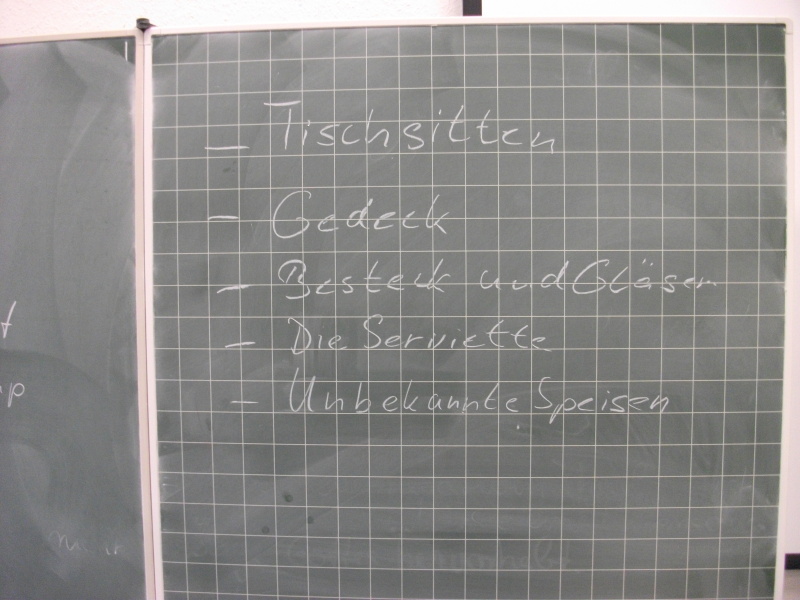 – Tischsitten
– Gedeck
– Besteck und Gläser
– Die Serviette
– Unbekannte Speisen